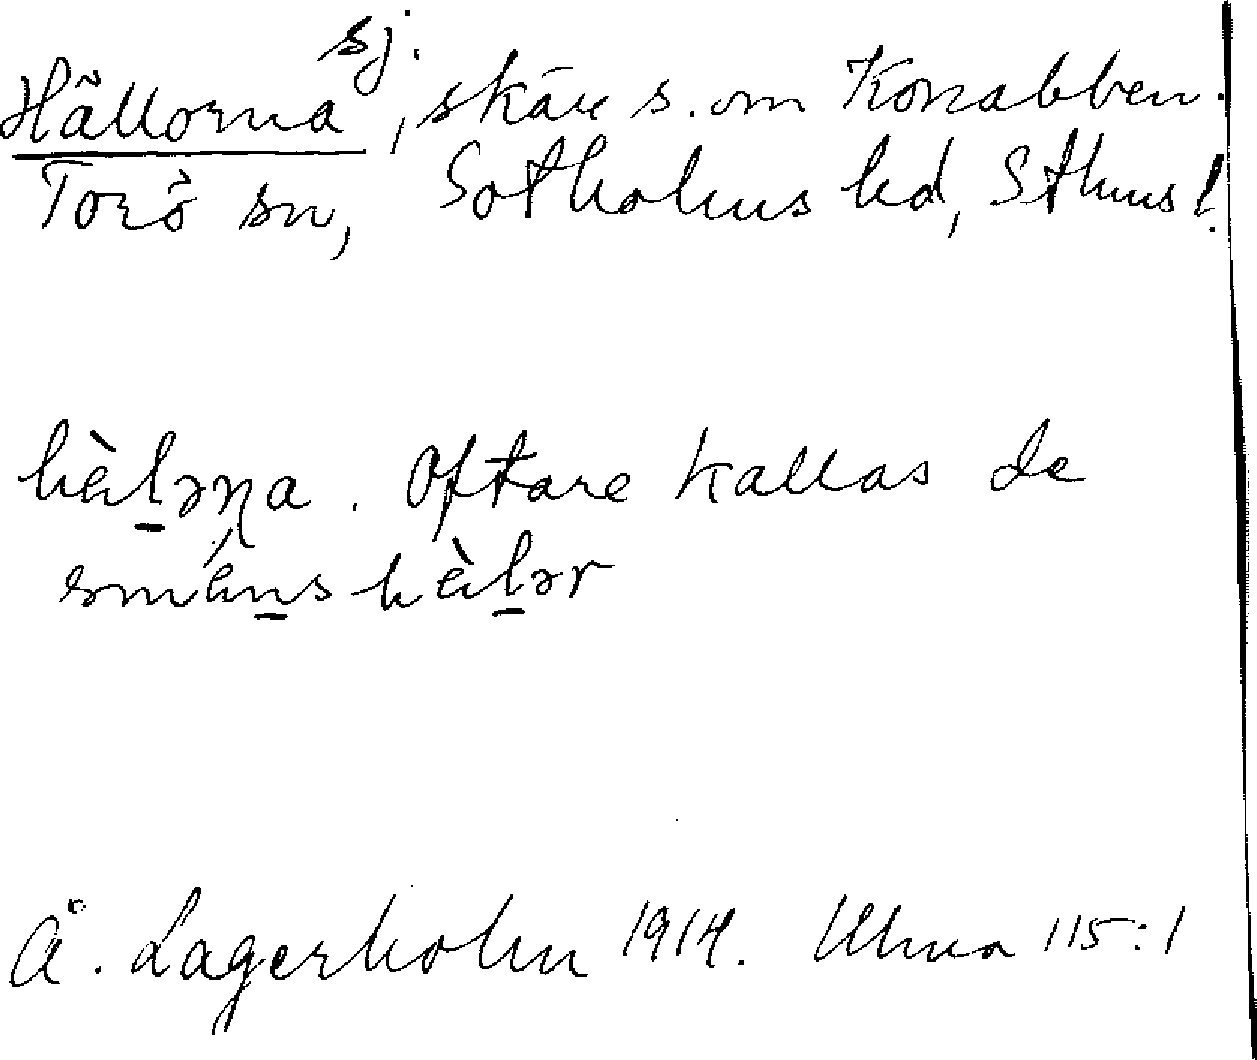 Hällorna sj., skär s. om Konabben.
Torö sn, Sotholms hd, Sthms l.
hὲl̠əɳa. Oftare kallas de
smɛ́n̠shὲl̠ər
Å. Lagerholm 1914. Ulma 115:1